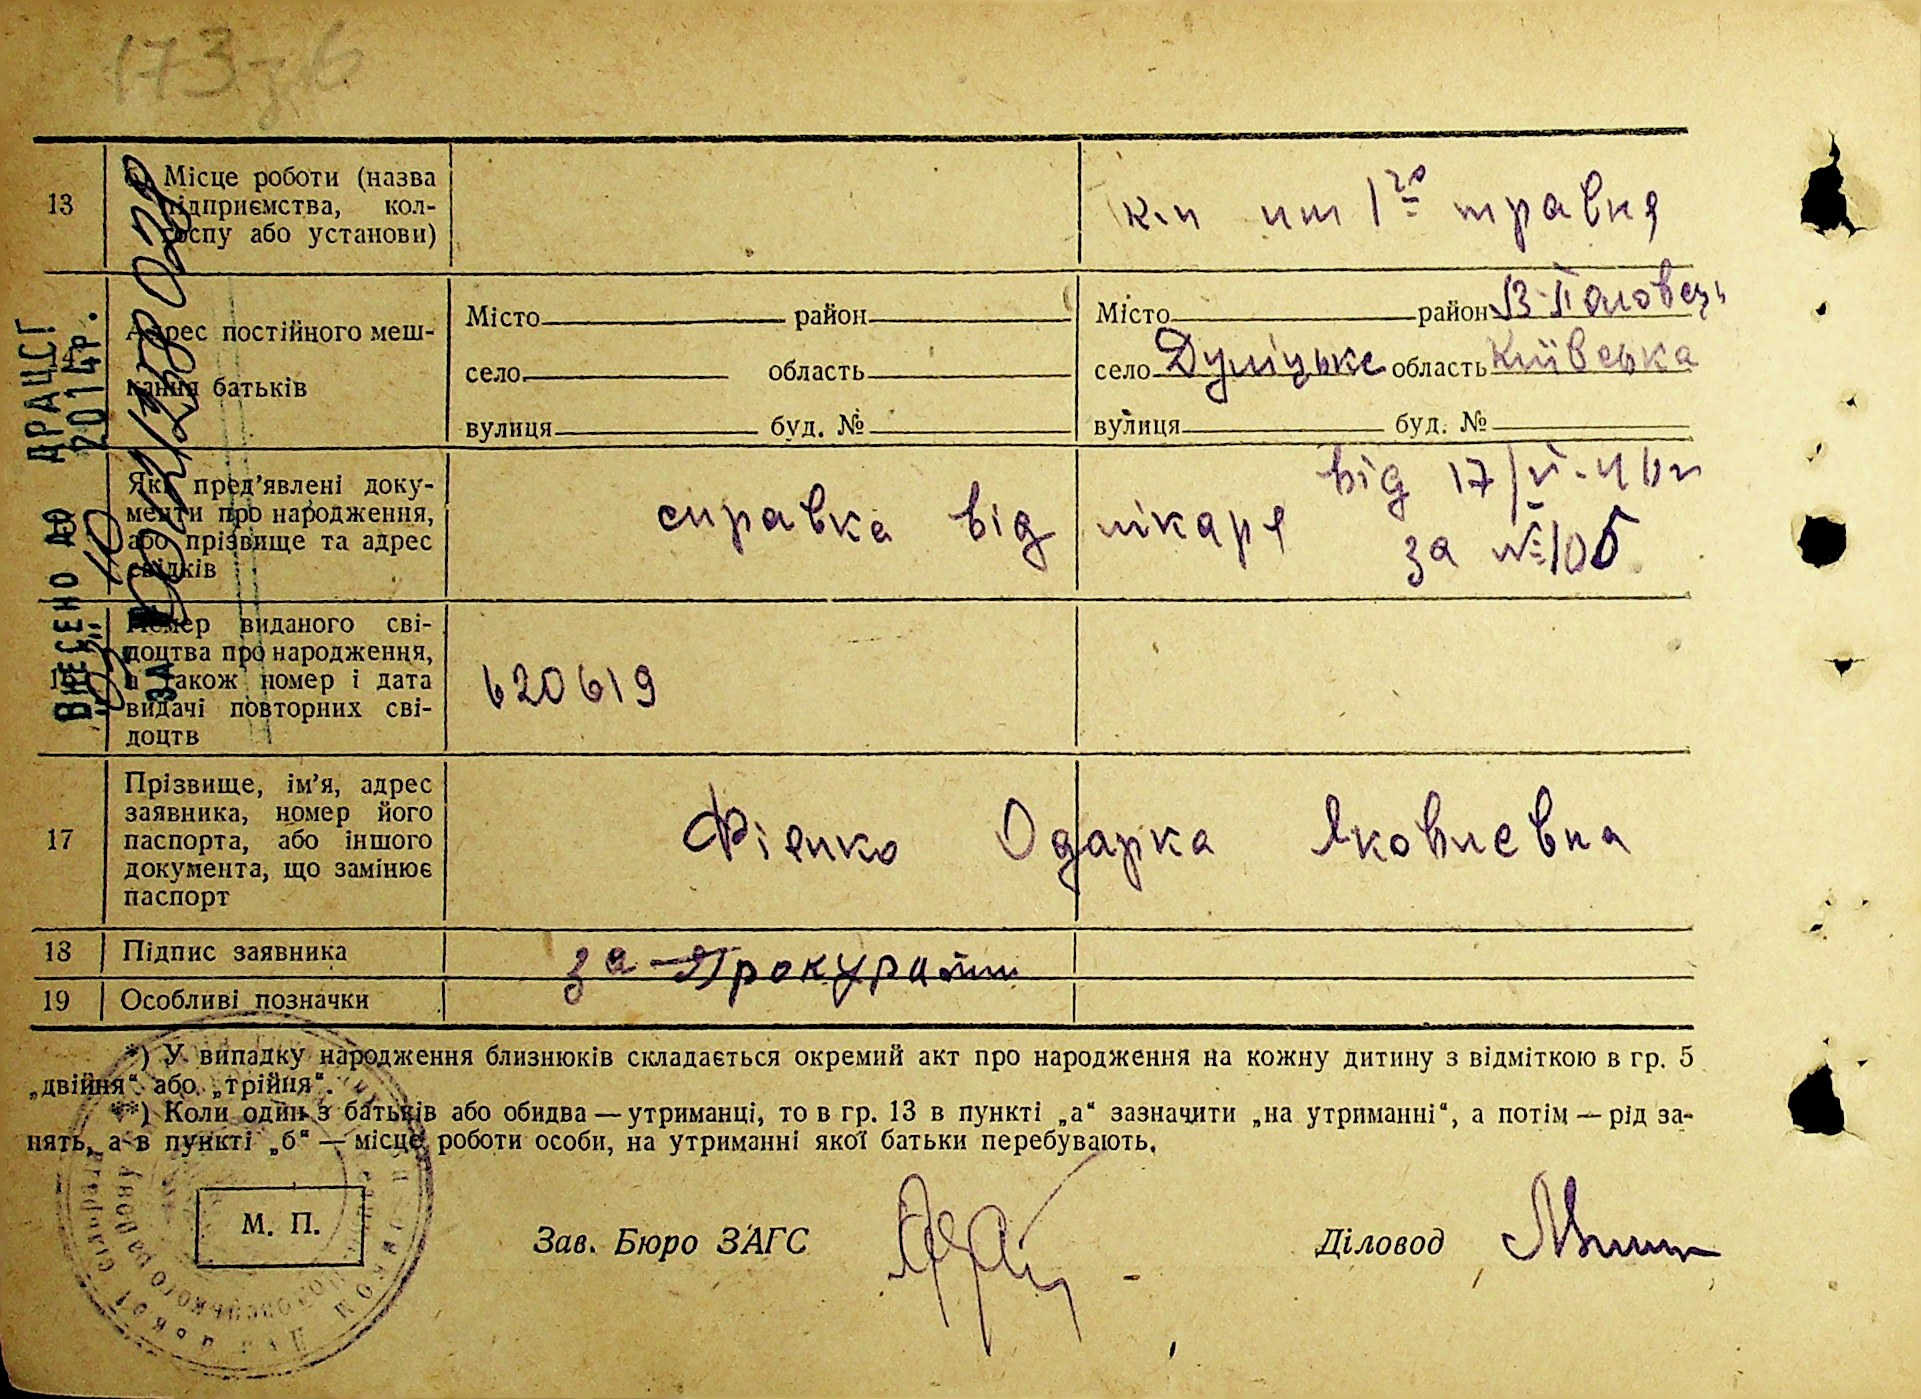 173
13
б) Місце роботи (назва
підприємства, кол-
госпу або установи)
к-п им 1го травня
14
Адрес постійного меш-
кання батьків
Місто район
село область
вулиця буд. №
Місто район В-Половець
село Дуліцьке область Київська
вулиця буд. №
Які пред'явлені доку-
менти про народження,
або прізвище та адрес
свідків
справка від лікаря від 17/VI-
за №106
16
Номер виданого сві-
доцтва про народження,
а також номер і дата
видачі повторних сві-
доцтв
620619
17
Прізвище, ім'я, адрес
заявника, номер його
паспорта, або іншого
документа, що замінює
паспорт
Одарка Яковлевна
18
Підпис заявника
за
19
Особливі позначки
ВНЕСЕНО ДО ДРАЦСГ
2014р.
ЗА №
*) У випадку народження близнюків складається окремий акт про народження на кожну дитину з відміткою в гр. 5
„двійня“ або „трійня“.
**) Коли один з батьків або обидва — утриманці, то в гр. 13 в пункті „а“ зазначити „на утриманні“, а потім — рід за-
нять, а в пункті „б“ — місце роботи особи, на утриманні якої батьки перебувають.
М. П.
Зав. Бюро ЗАГС
Діловод